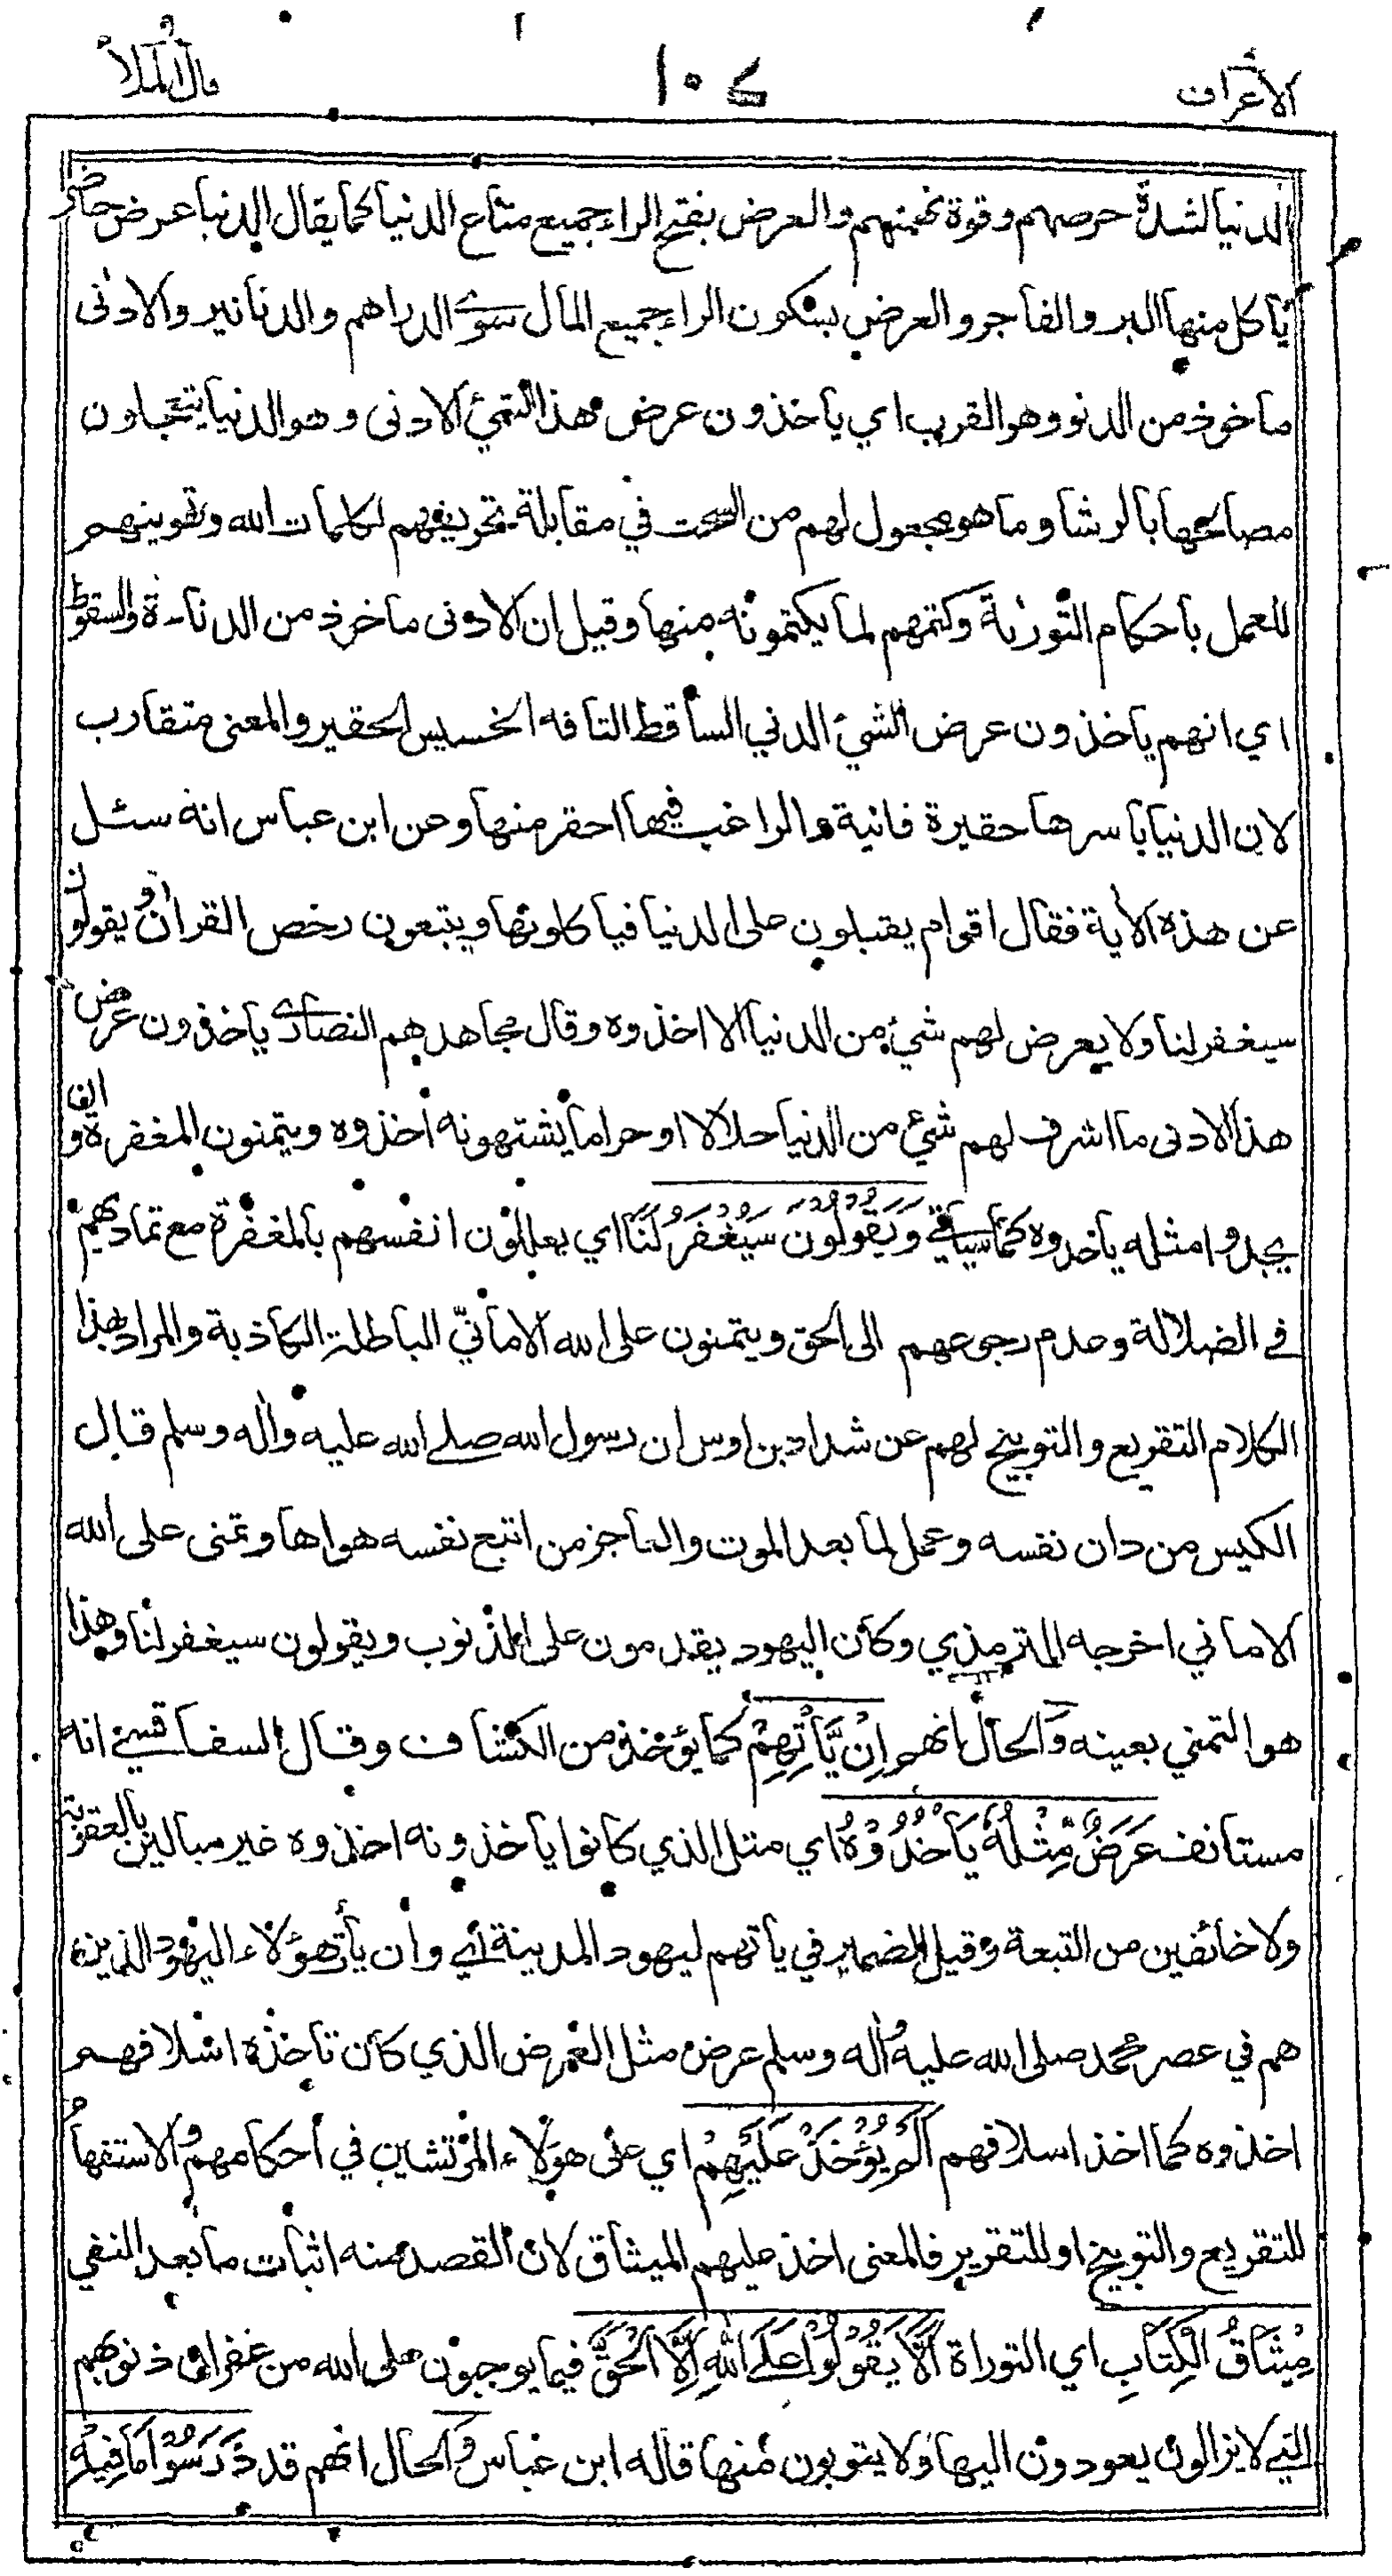 الاعراف ١٠٤ قال الملأ
الدنيا لشدة حرصهم وقوة نهمتهم والعرض بفتح الراء جميع متاع الدنيا كما يقال الدنيا عرض حاضر
يأكل منها البر والفاجر والعرض بسكون الراء جميع المال سوى الدراهم والدنانير والادنى
ماخوذ من الدنو وهو القرب اي يأخذون عرض هذا الشيء الادنى وهو الدنيا يتعجلون
مصالحها بالرشا وما هو مجعول لهم من السحت في مقابلة تحريفهم لكلمات الله وتهوينهم
للعمل بأحكام التورىة وكتمهم لما يكتمونه منها وقيل ان الادنى ماخوذ من الدناءة والسقوط
اي انهم يأخذون عرض الشيء الدني الساقط التافه الخسيس الحقير والمعنى متقارب
لان الدنيا بأسرها حقيرة فانية والراغب فيها احقر منها وعن ابن عباس انه سئل
عن هذه الأية فقال اقوام يقبلون على الدنيا فيأكلونها ويتبعون رخص القرأن ويقولون
سيغفر لنا ولا يعرض لهم شيء من الدنيا الا اخذوه وقال مجاهد هم النصارى يأخذون عرض
هذا الادنى ما اشرف لهم شيء من الدنيا حلالا او حراما يشتهونه أخذوه ويتمنون المغفرة وان
يجدوا مثله يأخذوه كما سيأتي وَيَقُولُونَ سَيُغْفَرُ لَنَا اي يعللون انفسهم بالمغفرة مع تماديهم
في الضلالة وعدم رجوعهم الى الحق ويتمنون على الله الامانيّ الباطلة الكاذبة والمراد بهذا
الكلام التقريع والتوبيخ لهم عن شداد بن اوس ان رسول الله صلى الله عليه واله وسلم قال
الكيس من دان نفسه وعمل لما بعد الموت والعاجز من اتبع نفسه هواها وتمنى على الله
الاماني اخرجه الترمذي وكأن اليهود يقدمون على الذنوب ويقولون سيغفر لنا وهذا
هو التمني بعينه وَالحال انهم اِنْ يَّأْتِهِمْ كما يؤخذ من الكشاف وقال السفاقسي انه
مستأنف عَرَضٌ مِّثْلُهُ يَأْخُذُوْهُ اي مثل الذي كانوا يأخذونه اخذوه غير مبالين بالعقوبة
ولا خائفين من التبعة وقيل الضمير في يأتهم ليهود المدينة أي وأن يأت هؤلاء اليهود الذين
هم في عصر محمد صلى الله عليه واله وسلم عرض مثل العرض الذي كان تأخذه اسلافهم
اخذوه كما اخذ اسلافهم اَلَمْ يُؤْخَذْ عَلَيْهِمْ اي على هؤلاء المرتشين في أحكامهم والاستفهام
للتقريع والتوبيخ او للتقرير فالمعنى اخذ عليهم الميثاق لان القصد منه اثبات ما بعد النفي
مِيْثَاقُ الْكِتَابِ اي التوراة اَلَّا يَقُوْلُوْا عَلَى اللهِ اِلَّا الْحَقَّ فيما يوجبون على الله من غفران ذنوبهم
التي لا يزالون يعودون اليها ولا يتوبون منها قاله ابن عباس وَالحال انهم قد دَرَسُوْا مَا فِيْهِ